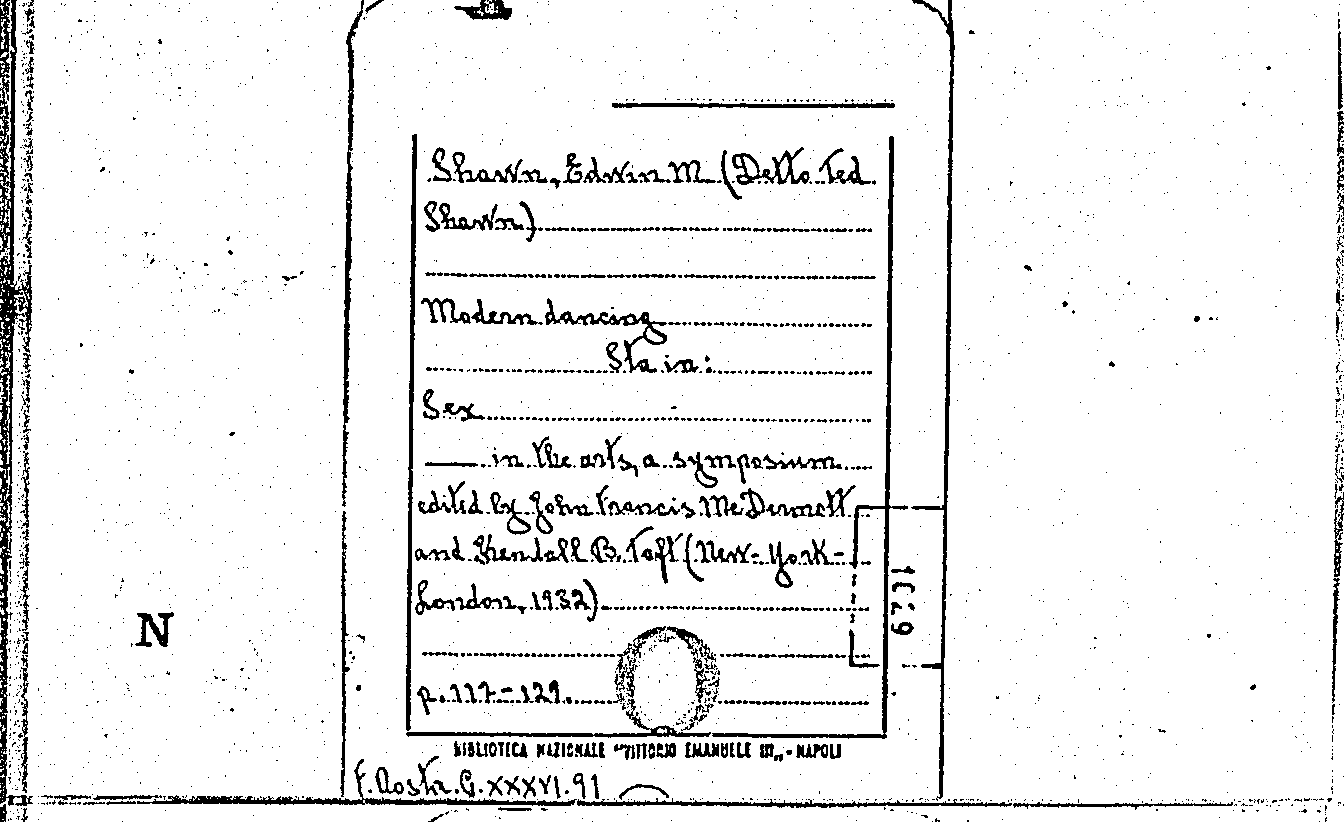 Shawn, Edwin M. (Detto Ted
Shawn)
Modern dancing
Sta in:
Sex
in the arts, a symposium
edited by John Francis McDermott
and Kendall B. Taft (New-York-
London, 1932)
p. 117-129.
1029
N
BIBLIOTECA NAZIONALE "VITTORIO EMANUELE III" - NAPOLI
F. Nostr. G. XXXVI. 91